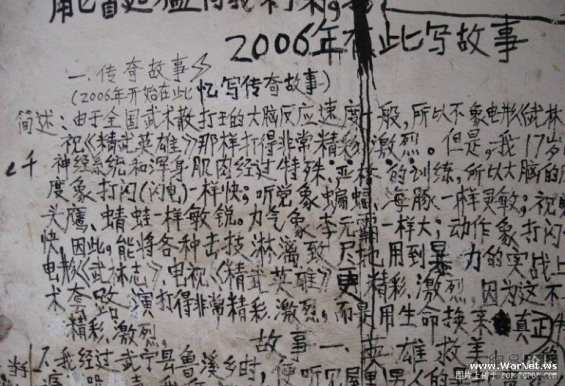 2006年在此写故事
一.传奇故事
(2006年开始在此忆写传奇故事)
简述:由于全国武术散打王的大脑反应速度一般,所以不象电影《武林
视《精武英雄》那样打得非常精彩,激烈。但是,我17岁
神经系统和浑身肌肉经过特殊,严格的训练,所以大脑的
度象打闪(闪电)一样快;听觉象蝙蝠,海豚一样灵敏;视
头鹰、蜻蜓一样敏锐。力气象李元霸一样大;动作象打闪
快,因此,能将各种击技淋漓致尽地用到暴力的实战上
电影《武林志》,电视《精武英雄》更精彩,激烈,因为这不
术套路,演打得非常精彩,激烈,而是用生命换来真正
精彩,激烈。
故事一、英雄救美
1.我经过武宁县鲁溪乡时,听见屋里
www.WarNet.ws